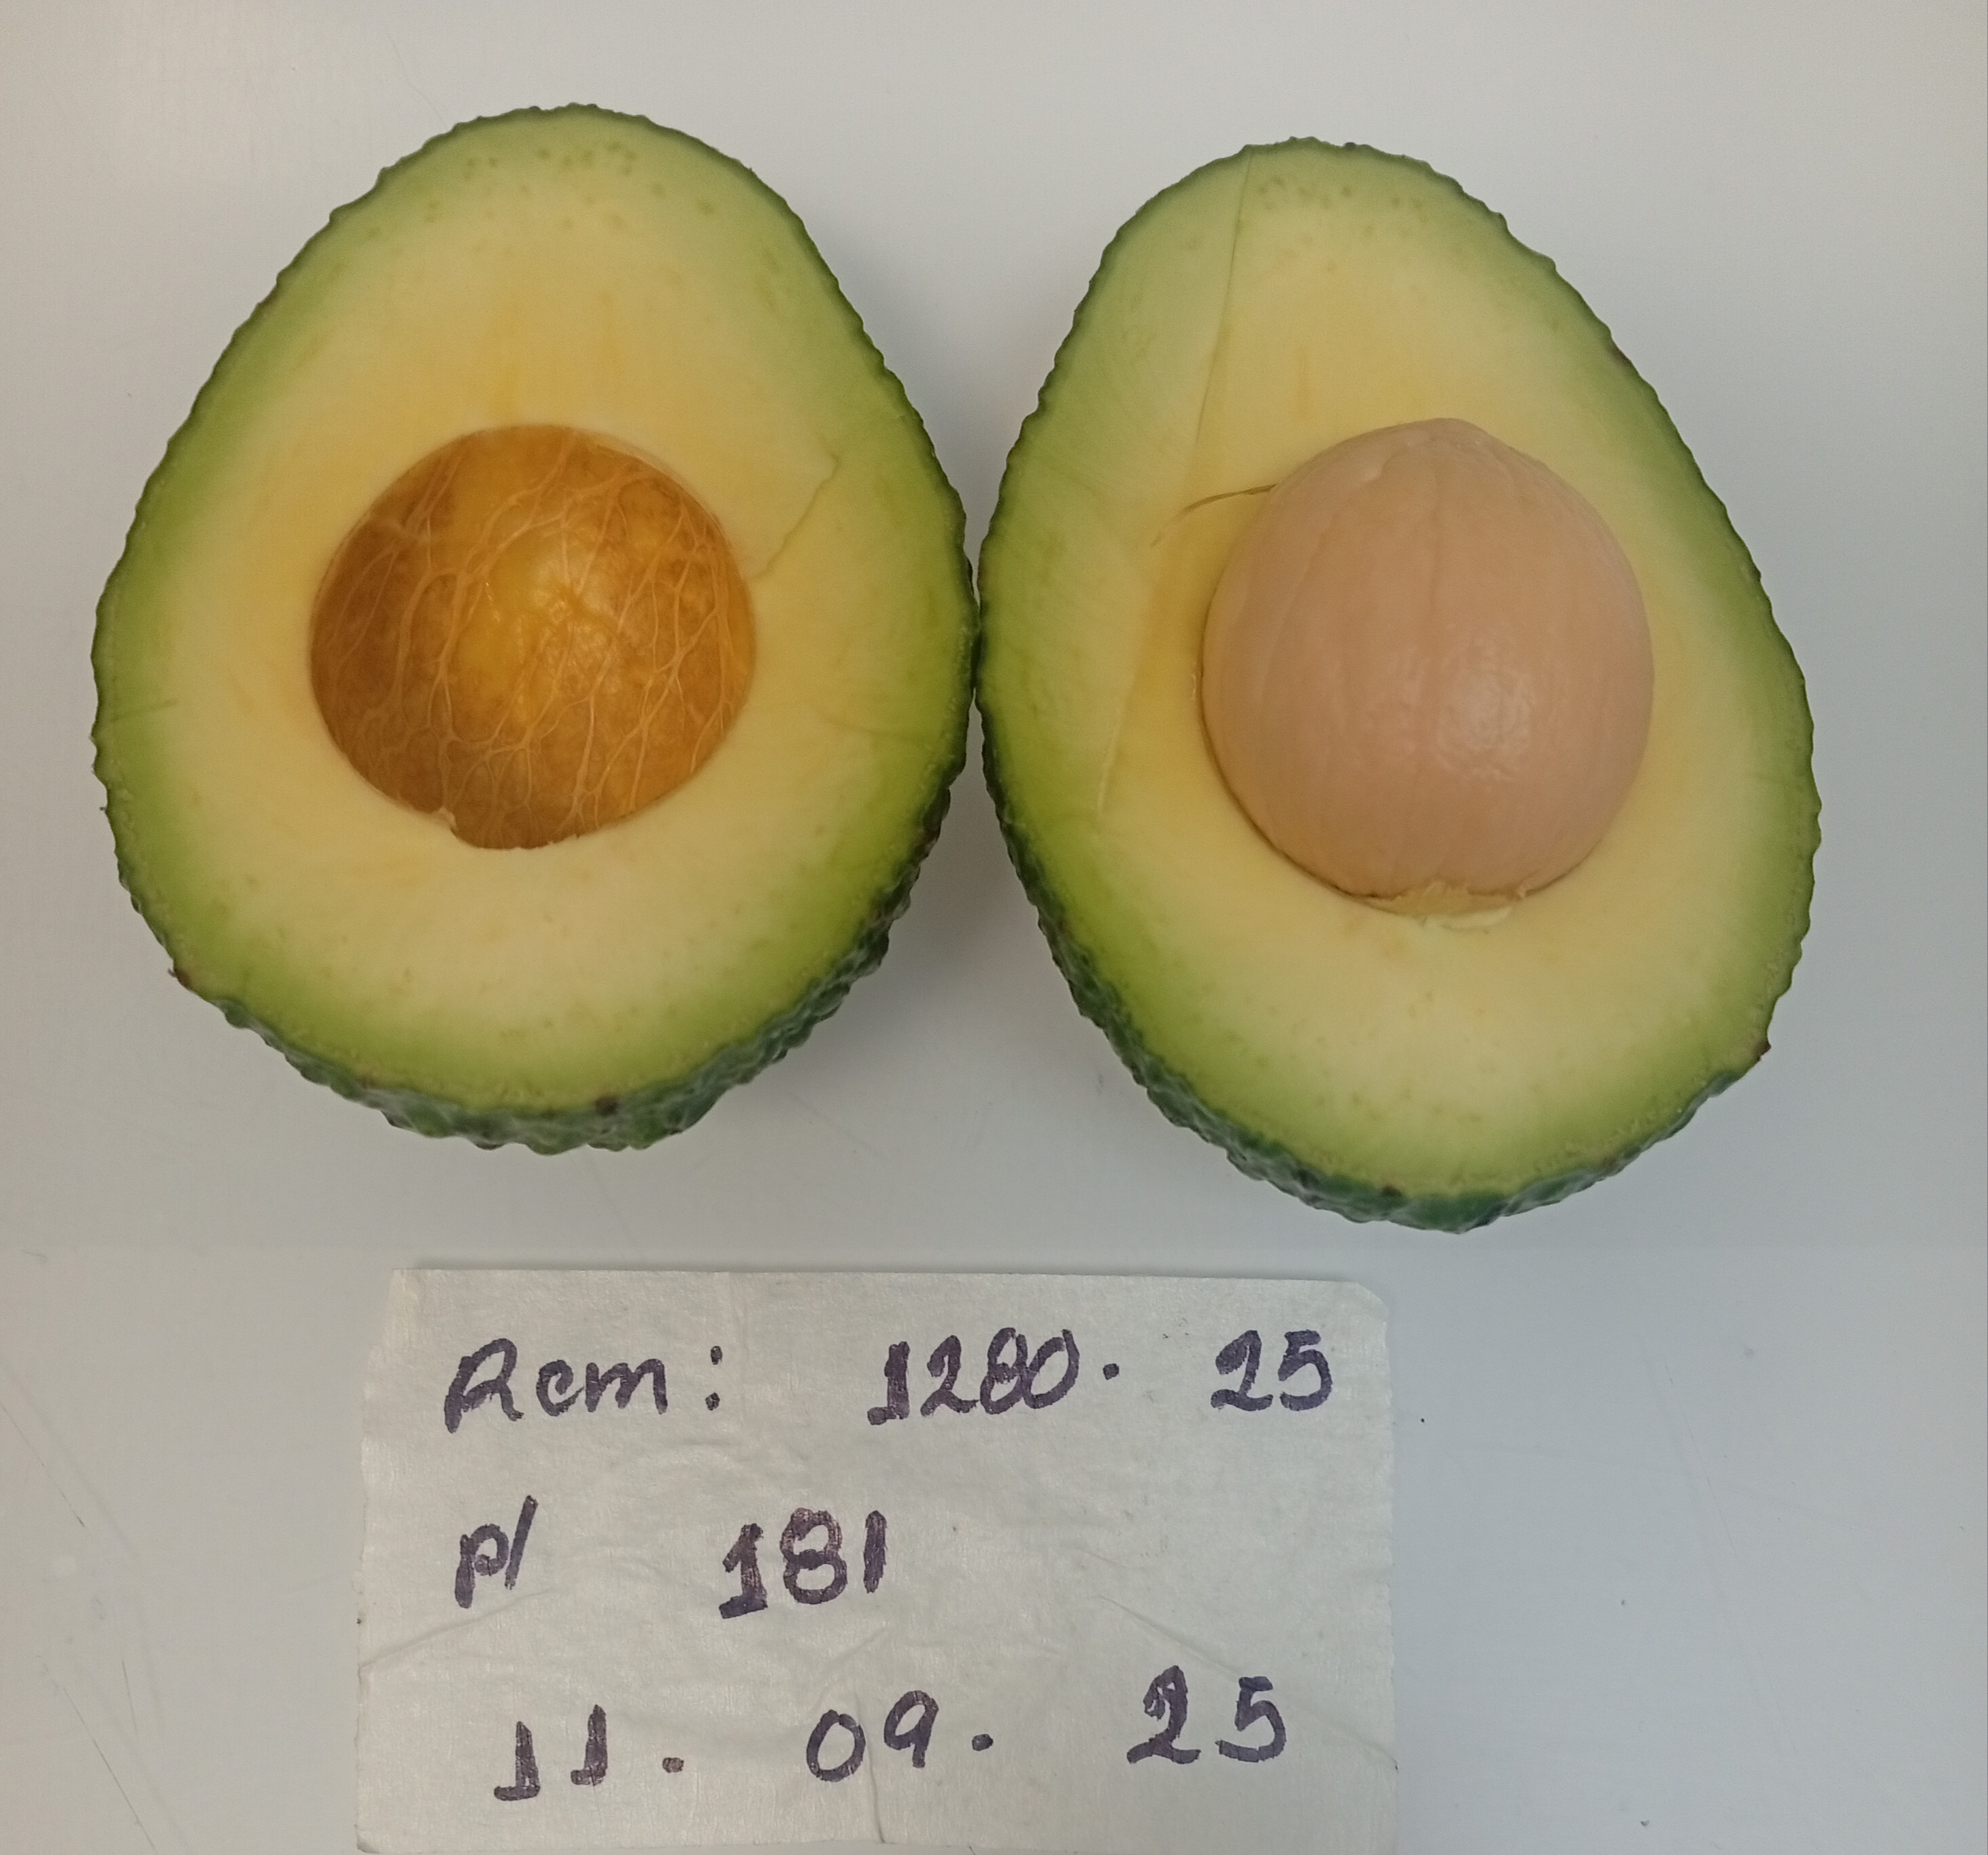 Rem: 1280. 25
p/ 181
11. 09. 25